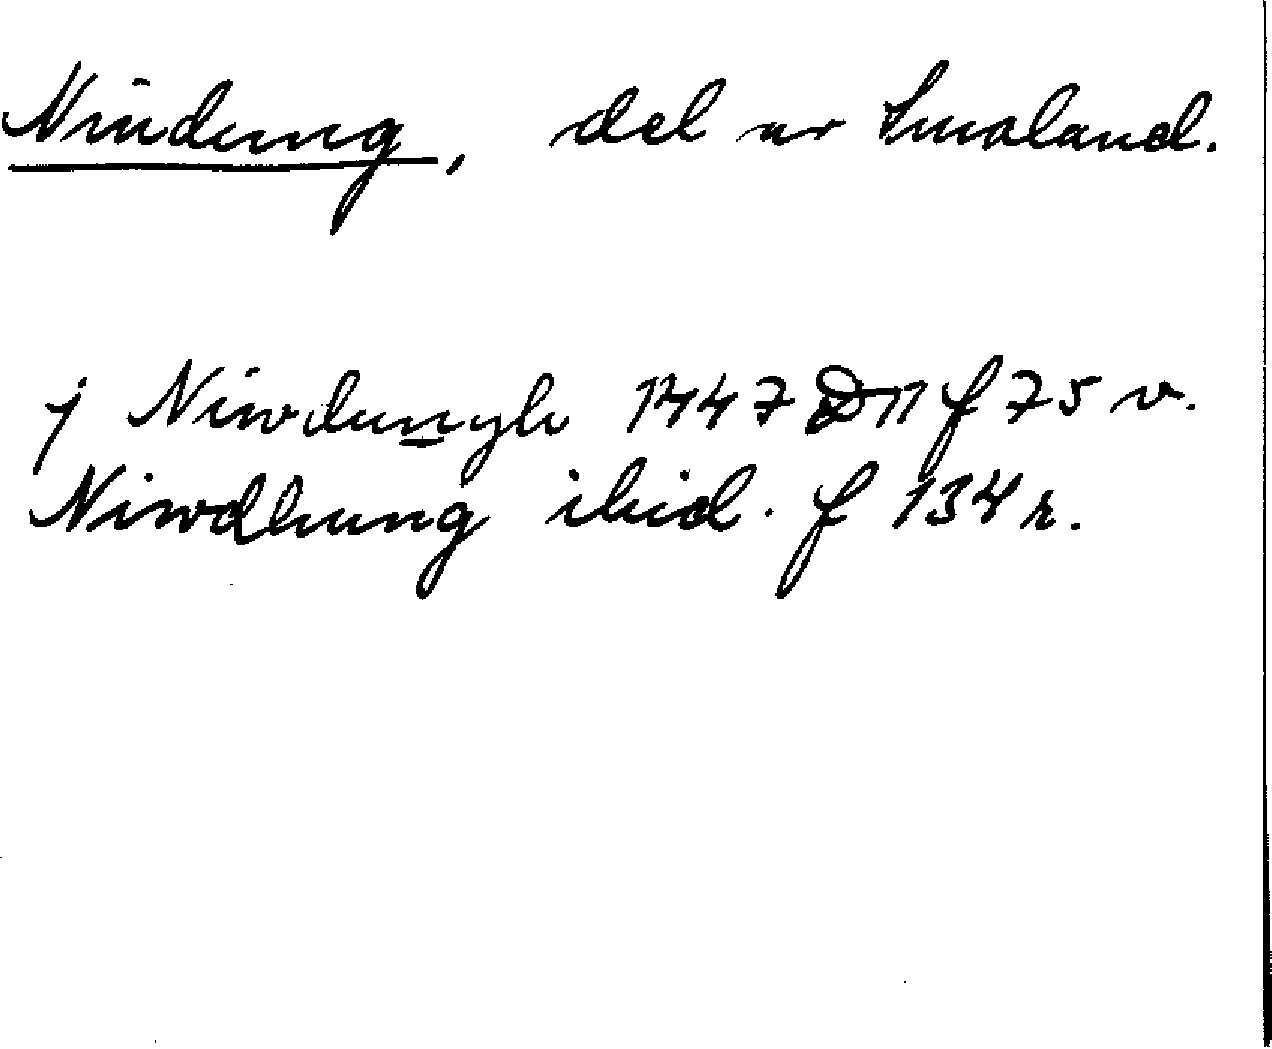 Niudung, del av Småland.
j Niwdungh 1447 D11 f 75 v.
Niwdhung ibid. f 134 r.